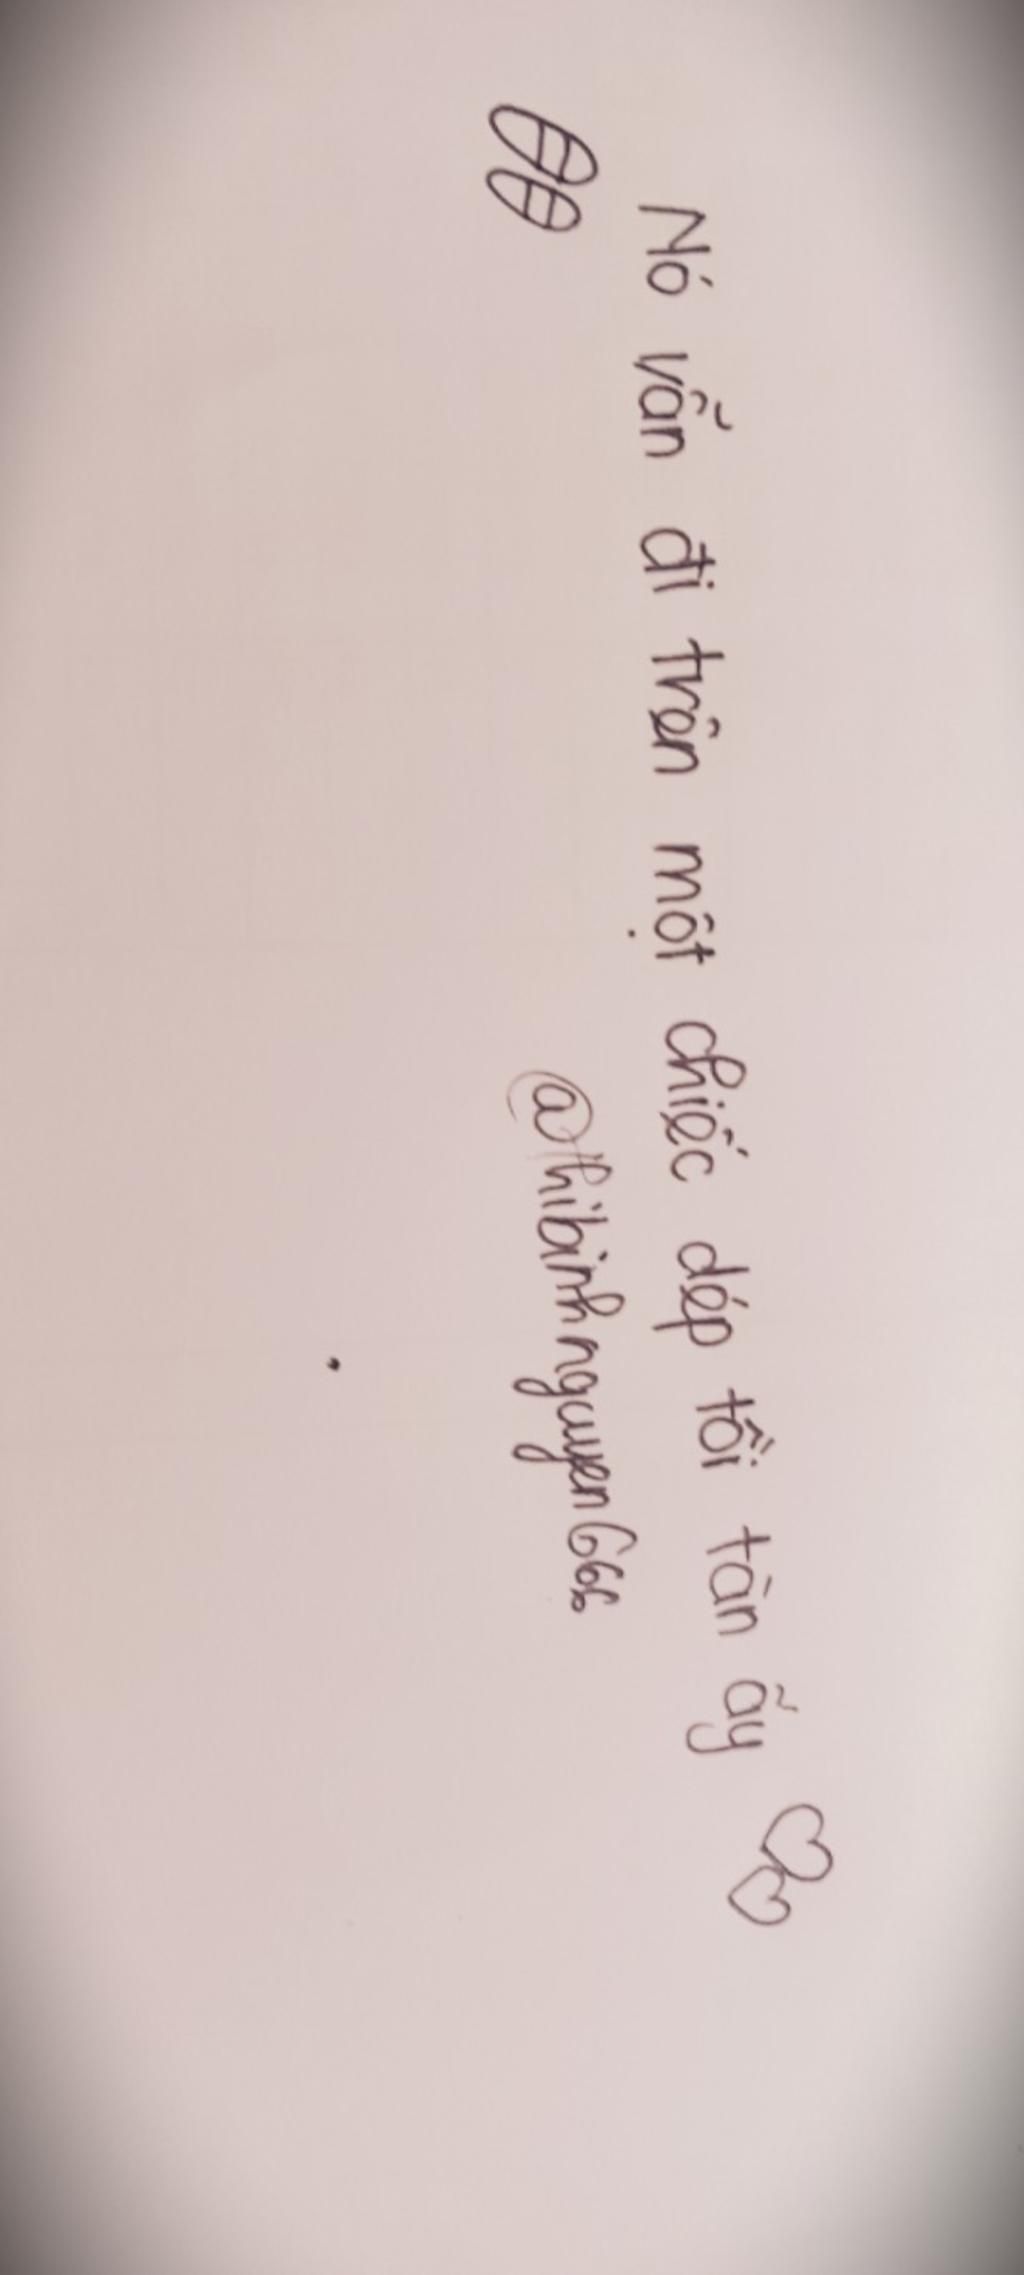 Nó vẫn đi trên một chiếc dép tồi tàn ấy
@thibinhnguyen666